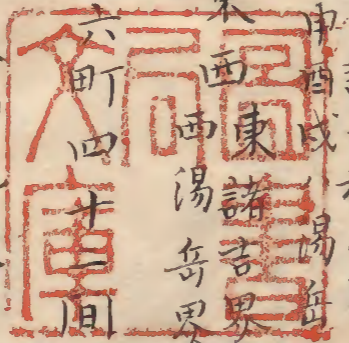 申酉戌湯岳
酉
東諸吉界
西湯岳界
六町四十一間
文庫